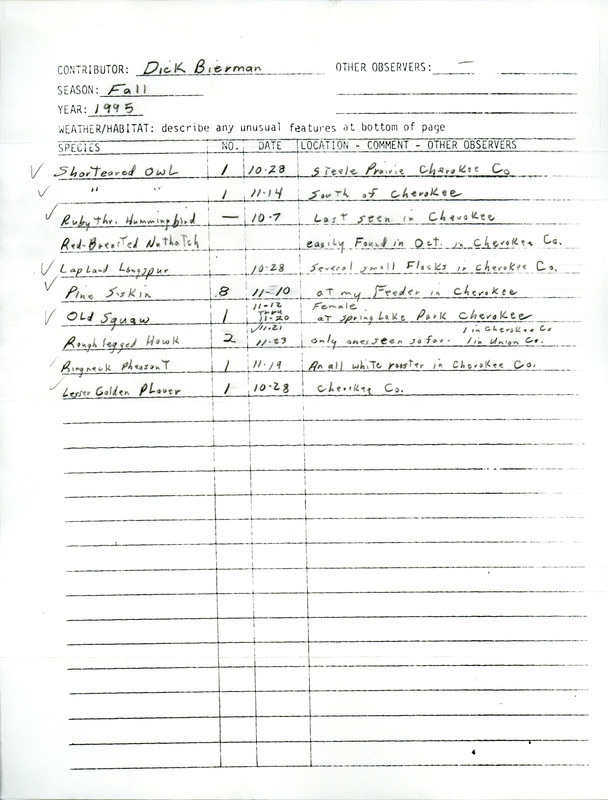 CONTRIBUTOR: Dick Bierman OTHER OBSERVERS: —
SEASON: Fall
YEAR: 1995
WEATHER/HABITAT: describe any unusual features at bottom of page
SPECIES NO. DATE LOCATION - COMMENT - OTHER OBSERVERS
✓ Shorteared Owl 1 10-28 Steele Prairie Cherokee Co
✓ " " 1 11-14 South of Cherokee
✓ Ruby thr. Hummingbird — 10-7 Last seen in Cherokee
Red-Breasted Nuthatch easily Found in Oct. in Cherokee Co.
✓ Lapland Longspur 10-28 Several small Flocks in Cherokee Co.
✓ Pine Siskin 8 11-10 at my Feeder in Cherokee
11-12 Female
✓ Old Squaw 1 thru 11-20 at Spring Lake Park Cherokee
✓ 11-21 1 in Cherokee Co
Rough legged Hawk 2 11-23 only ones seen so far. 1 in Union Co.
✓ Ringneck Pheasant 1 11-19 An all white rooster in Cherokee Co.
✓ Lesser Golden Plover 1 10-28 Cherokee Co.